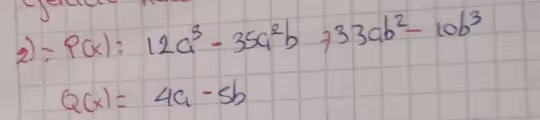 2)- P(x): 12a³ - 35a²b + 33ab² - 10b³
Q(x)= 4a - 5b